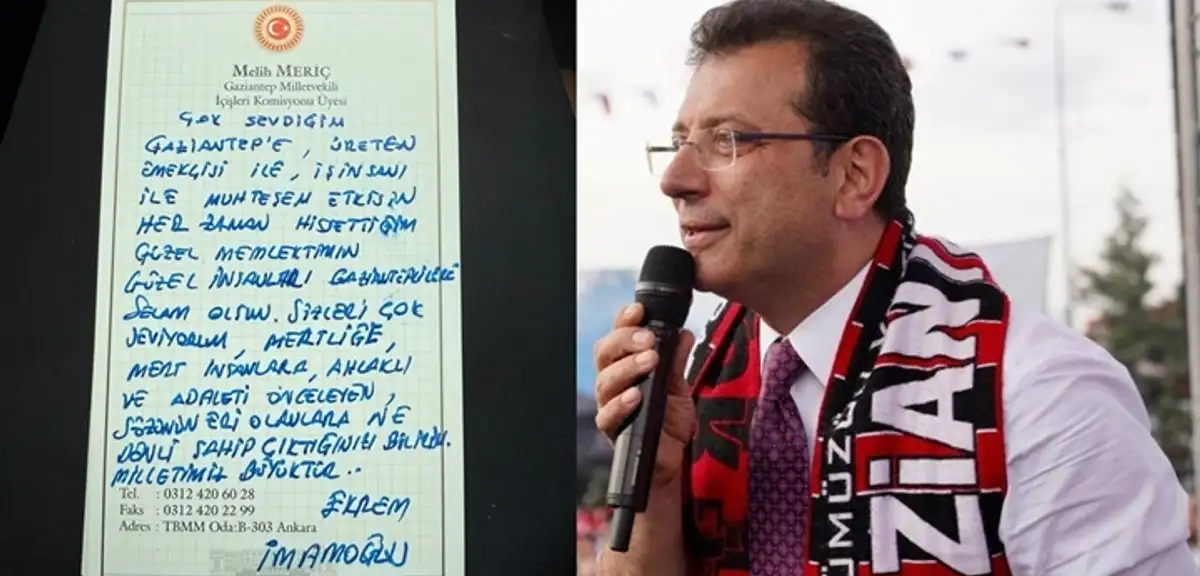 Melih MERİÇ
Gaziantep Milletvekili
İçişleri Komisyonu Üyesi
ÇOK SEVDİĞİM
GAZİANTEP'E, ÜRETEN
EMEKÇİSİ İLE, İŞİNSANI
İLE MUHTEŞEM ETKİSİN
HER ZAMAN HİSSETTİĞİM
GÜZEL MEMLEKTİMİN
GÜZEL İNSANLARI GAZİANTEPLİLERE
SELAM OLSUN. SİZLERİ ÇOK
SEVİYORUM, MERTLİĞE,
MERT İNSANLARA, AHLAKLI
VE ADALETİ ÖNCELEYEN,
SÖZÜNÜN ERİ OLANLARA NE
DENLİ SAHİP ÇIKTIĞINIZI BİLİRİM.
MİLLETİMİZ BÜYÜKTÜR..
Tel. : 0312 420 60 28
Faks : 0312 420 22 99
Adres : TBMM Oda:B-303 Ankara
EKREM
İMAMOĞLU
ZİAN
ÜMÜZÜ